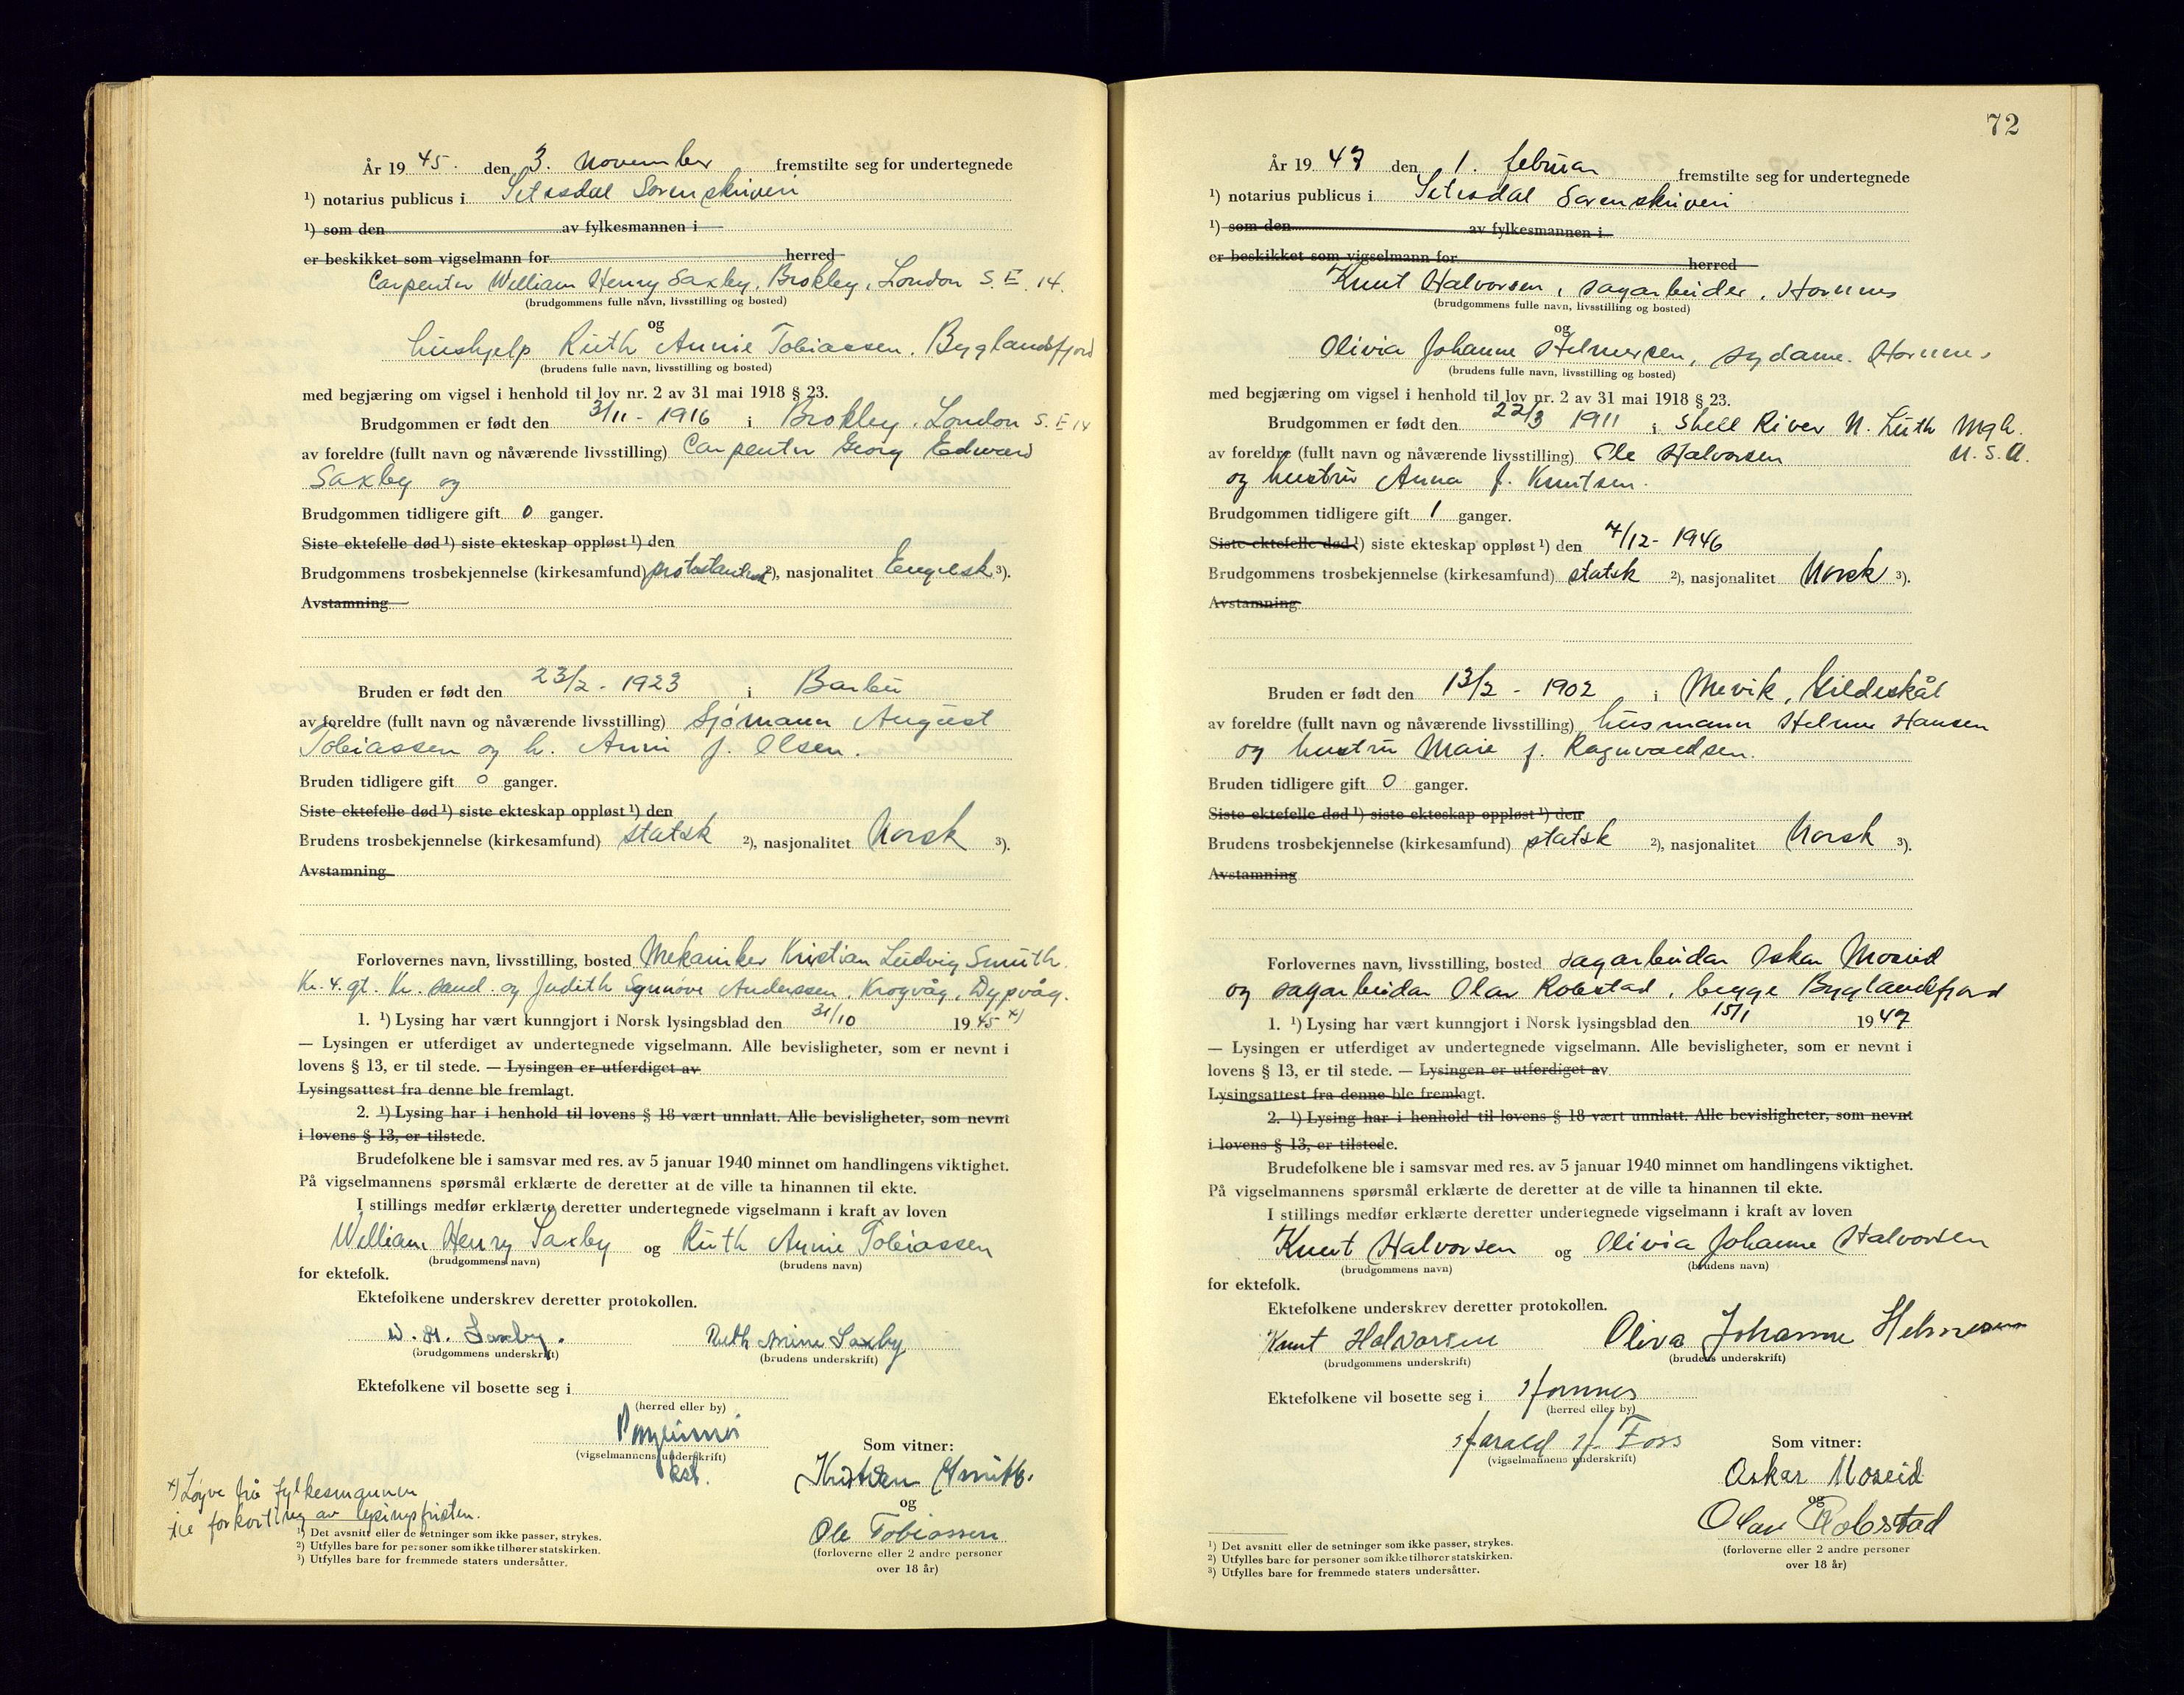 År 19 45. den 3. November fremstilte seg for undertegnede
¹) notarius publicus i Setesdal Sorenskriveri
¹) som den av fylkesmannen i
er beskikket som vigselmann for herred
Carpenter William Henry Saxby, Brokley, London S. E. 14.
(brudgommens fulle navn, livsstilling og bosted)
og
hushjelp Ruth Annie Tobiassen. Byglandsfjord
(brudens fulle navn, livsstilling og bosted)
med begjæring om vigsel i henhold til lov nr. 2 av 31 mai 1918 § 23.
Brudgommen er født den 3/11 - 1916 i Brokley. London S. E 14
av foreldre (fullt navn og nåværende livsstilling) Carpenter Georg Edward
Saxby og
Brudgommen tidligere gift 0 ganger.
Siste ektefelle død ¹) siste ekteskap oppløst ¹) den
Brudgommens trosbekjennelse (kirkesamfund) ²), nasjonalitet Engelsk ³).
Avstamning
Bruden er født den 23/2 - 1923 i Barbu
av foreldre (fullt navn og nåværende livsstilling) Sjømann August
Tobiassen og h. Anni f. Olsen.
Bruden tidligere gift 0 ganger.
Siste ektefelle død ¹) siste ekteskap oppløst ¹) den
Brudens trosbekjennelse (kirkesamfund) statsk ²), nasjonalitet Norsk ³).
Avstamning
Forlovernes navn, livsstilling, bosted Mekaniker Kristian Ludvig Smith
Kr. 4. gt. Kr. sand. og Judith Synnøve Anderssen, Krogvåg, Dypvåg.
1. ¹) Lysing har vært kunngjort i Norsk lysingsblad den 31/10 19 45 ×)
— Lysingen er utferdiget av undertegnede vigselmann. Alle bevisligheter, som er nevnt i
lovens § 13, er til stede. — Lysingen er utferdiget av
Lysingsattest fra denne ble fremlagt.
2. ¹) Lysing har i henhold til lovens § 18 vært unnlatt. Alle bevisligheter, som nevnt
i lovens § 13, er tilstede.
Brudefolkene ble i samsvar med res. av 5 januar 1940 minnet om handlingens viktighet.
På vigselmannens spørsmål erklærte de deretter at de ville ta hinannen til ekte.
I stillings medfør erklærte deretter undertegnede vigselmann i kraft av loven
William Henry Saxby og Ruth Annie Tobiassen
(brudgommens navn) (brudens navn)
for ektefolk.
Ektefolkene underskrev deretter protokollen.
W. H. Saxby. Ruth Annie Saxby
(brudgommens underskrift) (brudens underskrift)
Ektefolkene vil bosette seg i
(herred eller by)
(vigselmannens underskrift)
kst.
Som vitner:
Kristian Smith.
og
Ole Tobiassen
(forloverne eller 2 andre personer
over 18 år)
×) Løyve frå fylkesmannen
til forkorting av lysingsfristen.
¹) Det avsnitt eller de setninger som ikke passer, strykes.
²) Utfylles bare for personer som ikke tilhører statskirken.
³) Utfylles bare for fremmede staters undersåtter.
72
År 19 47 den 1. februar fremstilte seg for undertegnede
¹) notarius publicus i Setesdal Sorenskriveri
¹) som den av fylkesmannen i
er beskikket som vigselmann for herred
Knut Halvorsen, sagarbeider, Hornnes
(brudgommens fulle navn, livsstilling og bosted)
og
Olivia Johanne Helmersen, sydame. Hornnes
(brudens fulle navn, livsstilling og bosted)
med begjæring om vigsel i henhold til lov nr. 2 av 31 mai 1918 § 23.
Brudgommen er født den 22/3 1911 i Shell River N. Luth Mgh.
av foreldre (fullt navn og nåværende livsstilling) Ole Halvorsen U. S. A.
og hustru Anna f. Knutsen.
Brudgommen tidligere gift 1 ganger.
Siste ektefelle død ¹) siste ekteskap oppløst ¹) den 7/12 - 1946
Brudgommens trosbekjennelse (kirkesamfund) statsk ²), nasjonalitet Norsk ³).
Avstamning
Bruden er født den 13/2 - 1902 i Mevik, Gildeskål
av foreldre (fullt navn og nåværende livsstilling) husmann Helmer Hansen
og hustru Marie f. Ragnvaldsen.
Bruden tidligere gift 0 ganger.
Siste ektefelle død ¹) siste ekteskap oppløst ¹) den
Brudens trosbekjennelse (kirkesamfund) statsk ²), nasjonalitet Norsk ³).
Avstamning
Forlovernes navn, livsstilling, bosted sagarbeidar Oskar Moseid
og sagarbeidar Olav Robstad, begge Byglandsfjord
1. ¹) Lysing har vært kunngjort i Norsk lysingsblad den 15/1 19 47
— Lysingen er utferdiget av undertegnede vigselmann. Alle bevisligheter, som er nevnt i
lovens § 13, er til stede. — Lysingen er utferdiget av
Lysingsattest fra denne ble fremlagt.
2. ¹) Lysing har i henhold til lovens § 18 vært unnlatt. Alle bevisligheter, som nevnt
i lovens § 13, er tilstede.
Brudefolkene ble i samsvar med res. av 5 januar 1940 minnet om handlingens viktighet.
På vigselmannens spørsmål erklærte de deretter at de ville ta hinannen til ekte.
I stillings medfør erklærte deretter undertegnede vigselmann i kraft av loven
Knut Halvorsen og Olivia Johanne Halvorsen
(brudgommens navn) (brudens navn)
for ektefolk.
Ektefolkene underskrev deretter protokollen.
Knut Halvorsen Oliva Johanne Helmersen
(brudgommens underskrift) (brudens underskrift)
Ektefolkene vil bosette seg i Hornnes
(herred eller by)
Harald H. Foss
(vigselmannens underskrift)
Som vitner:
Oskar Moseid
og
Olav Robstad
(forloverne eller 2 andre personer
over 18 år)
¹) Det avsnitt eller de setninger som ikke passer, strykes.
²) Utfylles bare for personer som ikke tilhører statskirken.
³) Utfylles bare for fremmede staters undersåtter.